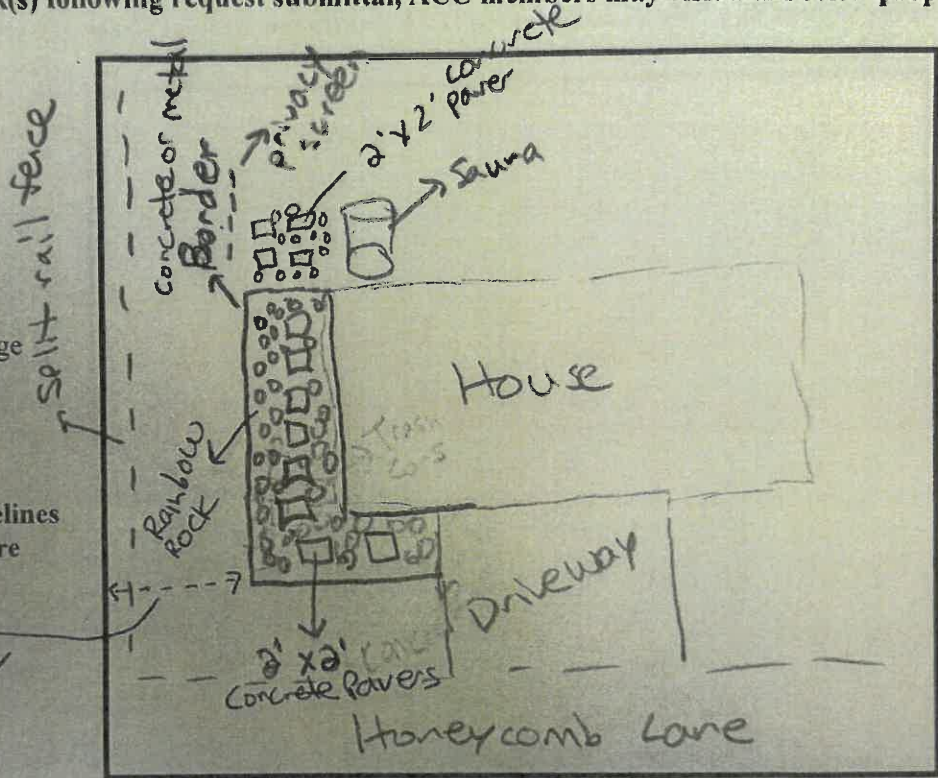 k(s) following request submittal, ACC members may
split rail fence
concrete or metal
Border
privacy
screen
2' x 2' concrete
paver
Sauna
ge
House
Trash
Rainbow
Rock
elines
re
Driveway
2' x 2'
Concrete Pavers
Honeycomb Lane